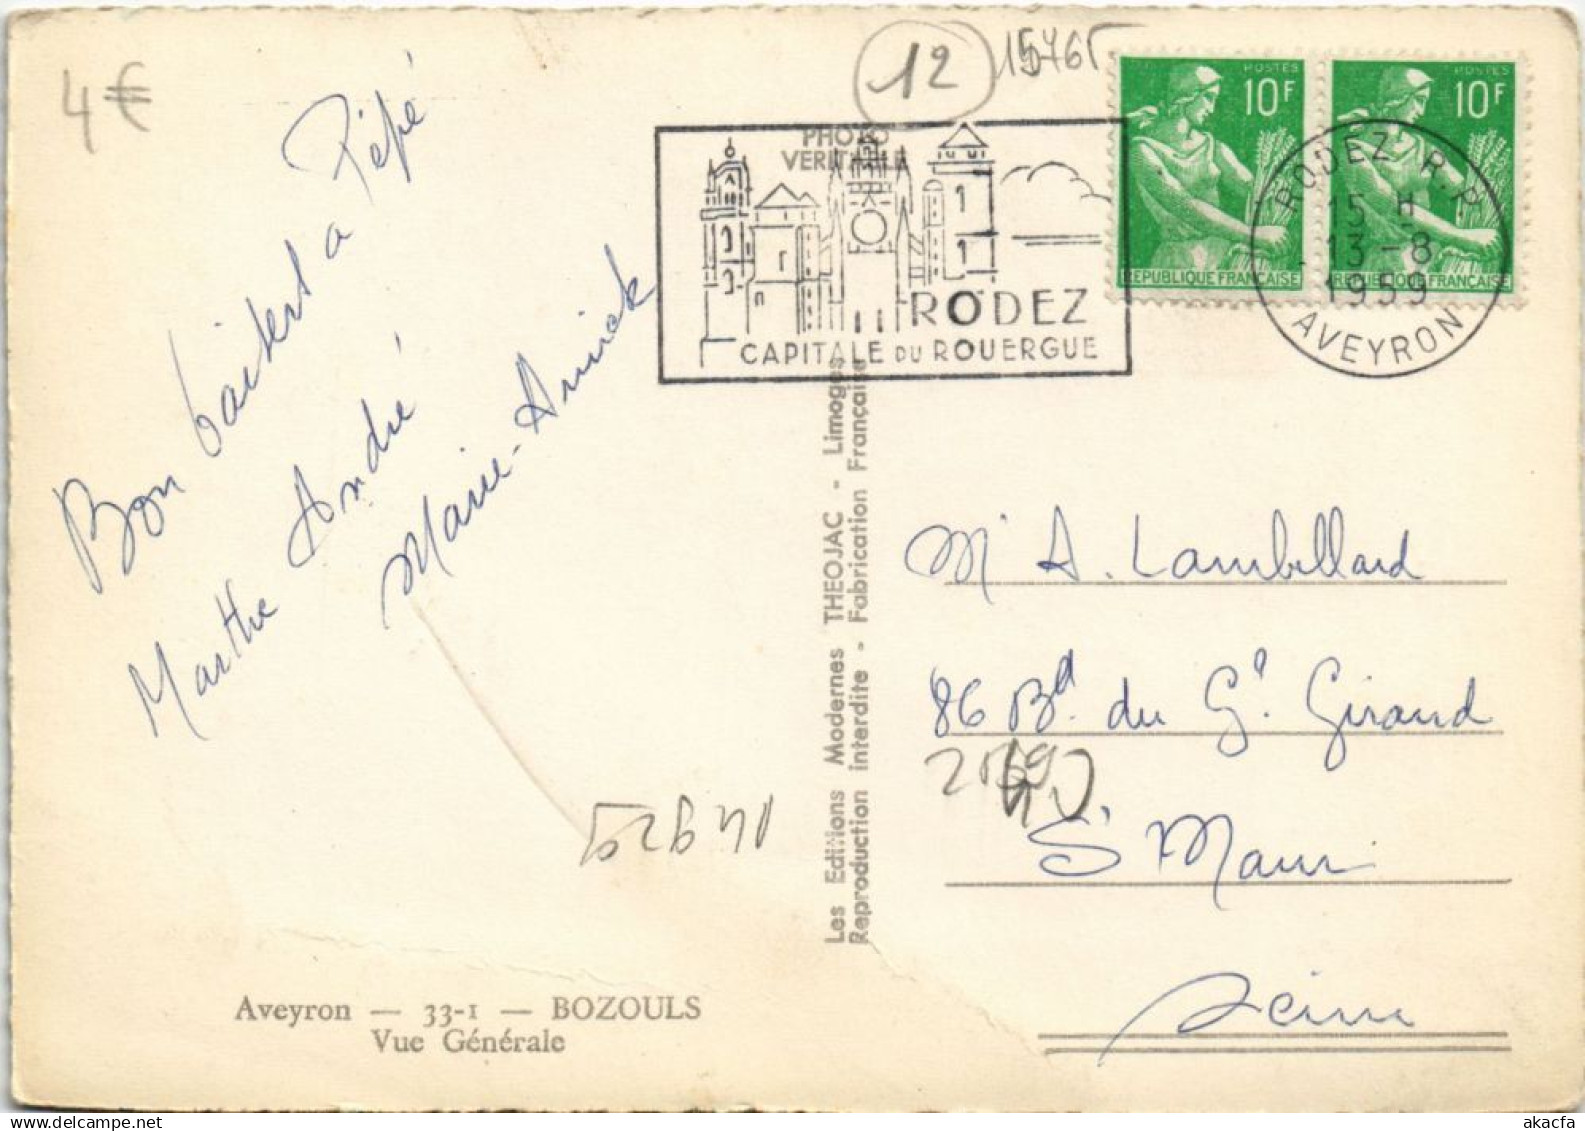 4€
12
15465
Bon baisers a Pépé
Marthe André
Marie-Annick
PHOTO
VERITABLE
RODEZ
CAPITALE DU ROUERGUE
POSTES
10F
REPUBLIQUE FRANÇAISE
POSTES
10F
REPUBLIQUE FRANÇAISE
RODEZ R.P.
15 H
13-8
1959
AVEYRON
Les Editions Modernes THEOJAC - Limoges
Reproduction interdite - Fabrication Française
Mr A. Lambillard
86 Bd. du Gl. Giraud
St Maur
Seine
14929
Aveyron — 33-1 — BOZOULS
Vue Générale
akacfa
delcampe.net